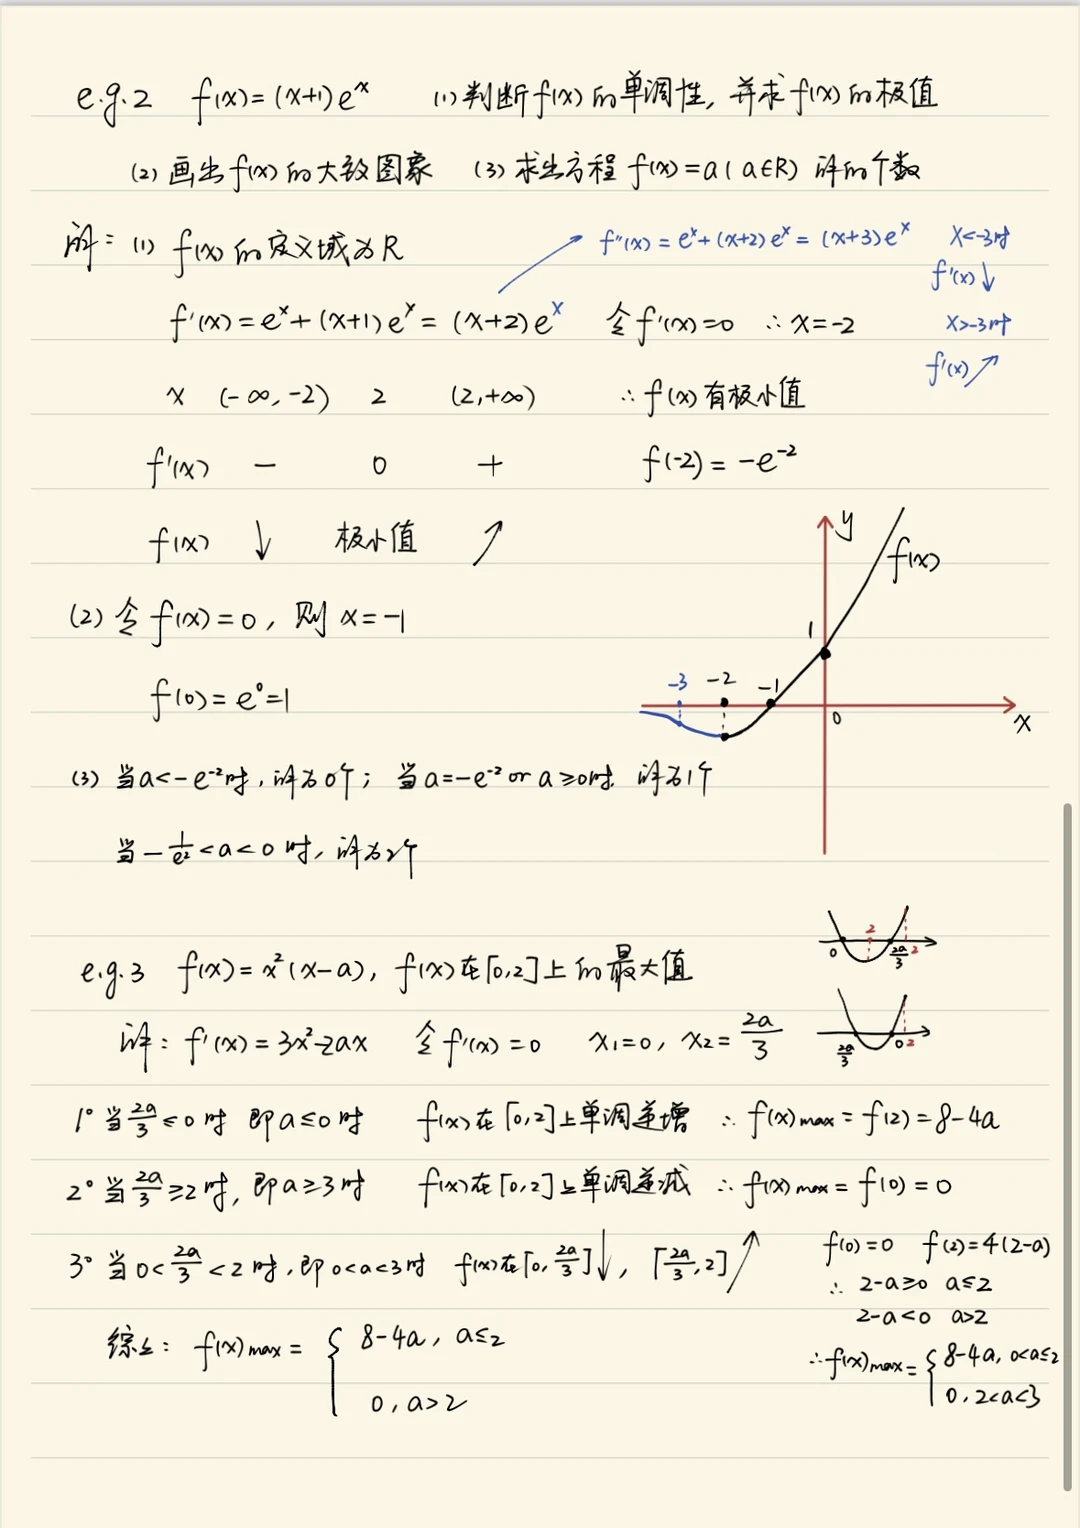 e.g.2 f(x)=(x+1)eˣ (1)判断f(x)的单调性, 并求f(x)的极值
(2)画出f(x)的大致图象 (3)求出方程f(x)=a(a∈R)解的个数
解:(1) f(x)的定义域为R
f''(x)=eˣ+(x+2)eˣ=(x+3)eˣ x<-3时
f'(x)↓
f'(x)=eˣ+(x+1)eˣ=(x+2)eˣ 令f'(x)=0 ∴x=-2
x>-3时
f'(x)↗
x (-∞,-2) 2 (2,+∞) ∴f(x)有极小值
f'(x) - 0 + f(-2)=-e⁻²
f(x) ↓ 极小值 ↗
y
f(x)
(2)令f(x)=0, 则x=-1
1
f(0)=e⁰=1
-3 -2 -1
0 x
(3)当a<-e⁻²时,解为0个; 当a=-e⁻² or a≥0时 解为1个
当-1/e²<a<0时,解为2个
2
0 2a/3 2
e.g.3 f(x)=x²(x-a), f(x)在[0,2]上的最大值
解: f'(x)=3x²-2ax 令f'(x)=0 x₁=0, x₂=2a/3
2a/3 0 2
1° 当2a/3≤0时 即a≤0时 f(x)在[0,2]上单调递增 ∴f(x)max=f(2)=8-4a
2° 当2a/3≥2时, 即a≥3时 f(x)在[0,2]上单调递减 ∴f(x)max=f(0)=0
3° 当0<2a/3<2时,即0<a<3时 f(x)在[0,2a/3]↓, [2a/3,2]↗
f(0)=0 f(2)=4(2-a)
∴ 2-a≥0 a≤2
2-a<0 a>2
∴f(x)max={8-4a, 0<a≤2
0, 2<a<3
综上: f(x)max={8-4a, a≤2
0, a>2